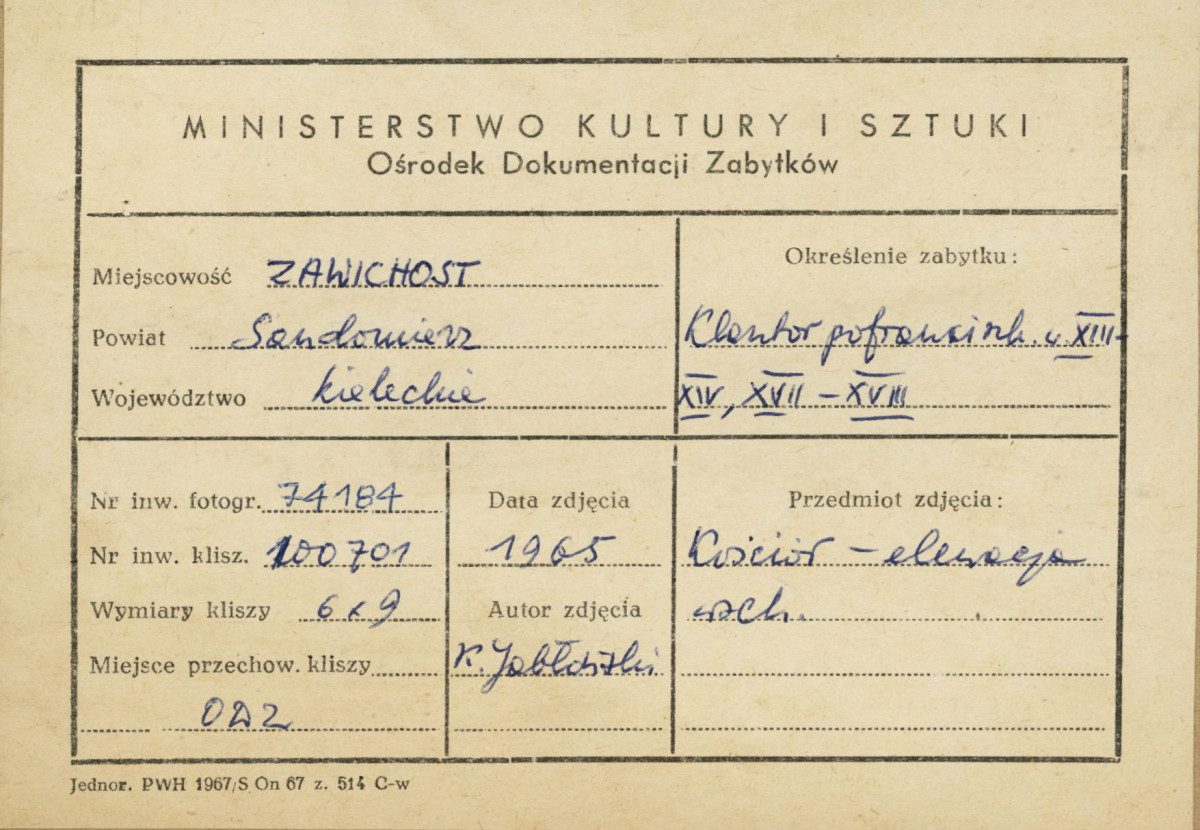 MINISTERSTWO KULTURY I SZTUKI
Ośrodek Dokumentacji Zabytków
Miejscowość ZAWICHOST
Powiat Sandomierz
Województwo kieleckie
Określenie zabytku:
Klasztor pofrancisk. w. XIII-
XIV, XVII – XVIII
Nr inw. fotogr. 74184
Nr inw. klisz. 100701
Wymiary kliszy 6 x 9
Miejsce przechow. kliszy
ODZ
Data zdjęcia
1965
Autor zdjęcia
K. Jabłoński
Przedmiot zdjęcia:
Kościół – elewacja
wsch.
Jednor. PWH 1967/S On 67 z. 514 C-w